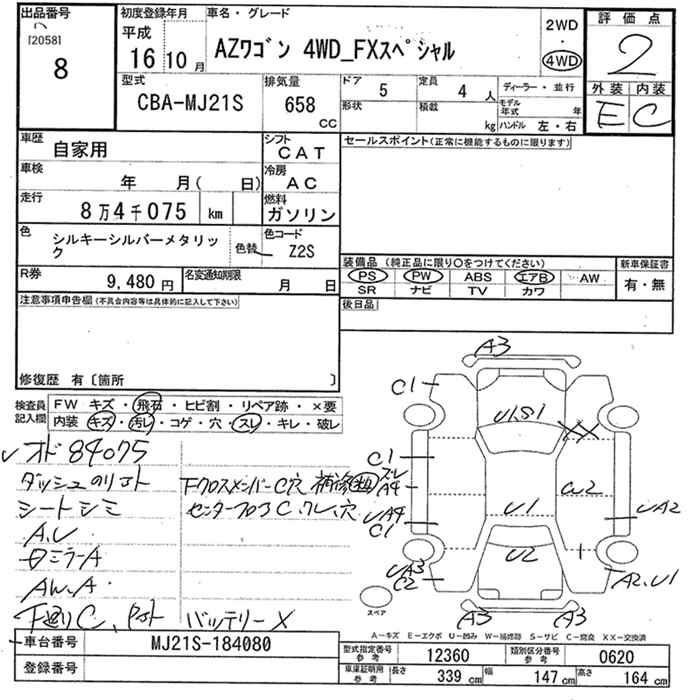 出品番号
[2058]
8
初度登録年月
平成
16 10月
車名・グレード
AZワゴン 4WD_FXスペシャル
2WD
・
4WD
評価点
2
外装 内装
E C
型式
CBA-MJ21S
排気量
658
CC
ドア 5
形状
定員 4人
積載 kg
ディーラー・並行
モデル年式 年
ハンドル 左・右
車歴
自家用
シフト
CAT
車検
年 月( 日)
冷房
AC
走行
8万4千075 km
燃料
ガソリン
色
シルキーシルバーメタリック
色替
色コード
Z2S
R券
9,480円
名変通知期限
月 日
セールスポイント(正常に機能するものに限ります)
装備品(純正品に限り○をつけてください)
PS PW ABS エアB AW
SR ナビ TV カワ
新車保証書
有・無
後日品
注意事項申告欄(不具合内容等は具体的に記入して下さい)
修復歴 有〔箇所 〕
検査員記入欄
FW キズ・飛石・ヒビ割・リペア跡・×要
内装 キズ・汚レ・コゲ・穴・スレ・キレ・破レ
オド84075
ダッシュのりょト
シートシミ
A.U
ミラーA
AW.A
下廻りC、
下クロスメンバーC穴 補修
センターフロアC、穴
バッテリーX
A3
C1
U1.S1
XX
C1
スレ
A4
W2
U1
UA4
C1
UA2
U2
UA3
C2
A2.U1
A3
A3
スペア
A－キズ E－エクボ U－凹み W－補修跡 S－サビ C－腐食 XX－交換済
車台番号
MJ21S-184080
登録番号
型式指定番号
参考
12360
類別区分番号
参考
0620
車庫証明用
参考
長さ 339cm
幅 147cm
高さ 164cm